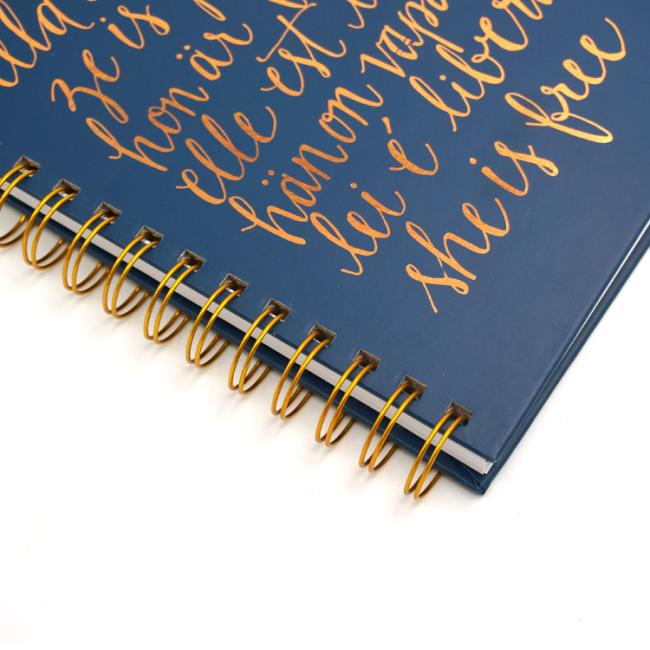 ella
ze is
hon är
elle est li
hän on vapa
lei é liber
she is free